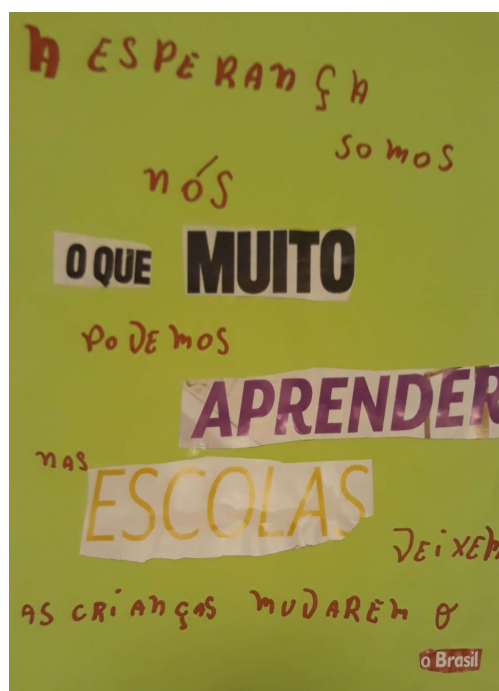 A ESPERANÇA
SOMOS
NÓS
O QUE MUITO
PODEMOS
APRENDER
NAS
ESCOLAS
DEIXEM
AS CRIANÇAS MUDAREM O
o Brasil